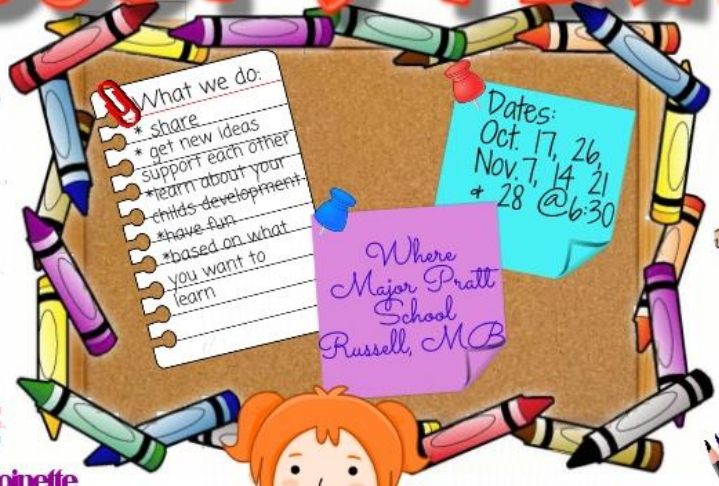 What we do:
* share
* get new ideas
support each other
*learn about your
childs development
*have fun
*based on what
you want to
learn
Dates:
Oct. 17, 26,
Nov.7, 14 21
& 28 @6:30
Where
Major Pratt
School
Russell, MB